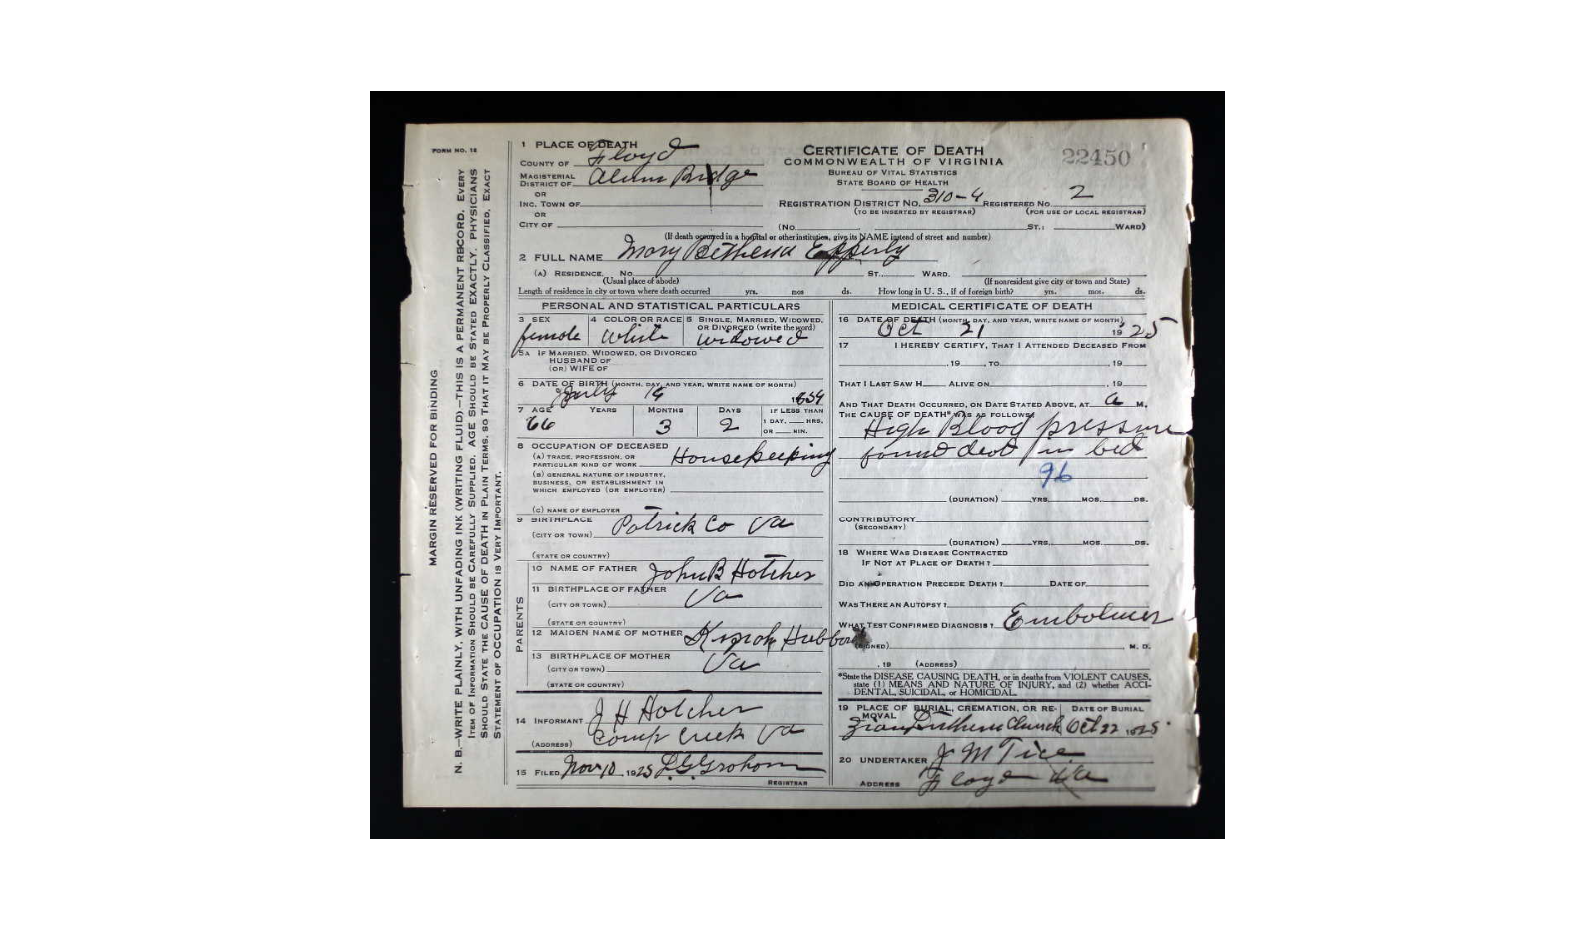 FORM NO. 12
MARGIN RESERVED FOR BINDING
N. B.—WRITE PLAINLY, WITH UNFADING INK (WRITING FLUID)—THIS IS A PERMANENT RECORD. EVERY
ITEM OF INFORMATION SHOULD BE CAREFULLY SUPPLIED. AGE SHOULD BE STATED EXACTLY. PHYSICIANS
SHOULD STATE THE CAUSE OF DEATH IN PLAIN TERMS, SO THAT IT MAY BE PROPERLY CLASSIFIED. EXACT
STATEMENT OF OCCUPATION IS VERY IMPORTANT.
1 PLACE OF DEATH
COUNTY OF Floyd
MAGISTERIAL
DISTRICT OF Alum Bridge
OR
INC. TOWN OF
OR
CITY OF
CERTIFICATE OF DEATH
COMMONWEALTH OF VIRGINIA
BUREAU OF VITAL STATISTICS
STATE BOARD OF HEALTH
22450
REGISTRATION DISTRICT NO. 310-4 REGISTERED NO. 2
(TO BE INSERTED BY REGISTRAR) (FOR USE OF LOCAL REGISTRAR)
(NO. ST.; WARD)
(If death occurred in a hospital or other institution, give its NAME instead of street and number)
2 FULL NAME Mary Bethena Epperly
(A) RESIDENCE. No. ST. WARD.
(Usual place of abode) (If nonresident give city or town and State)
Length of residence in city or town where death occurred yrs. mos. ds. How long in U. S., if of foreign birth? yrs. mos. ds.
PERSONAL AND STATISTICAL PARTICULARS
3 SEX female
4 COLOR OR RACE White
5 SINGLE, MARRIED, WIDOWED,
OR DIVORCED (write the word)
widowed
5A IF MARRIED, WIDOWED, OR DIVORCED
HUSBAND OF
(OR) WIFE OF
6 DATE OF BIRTH (MONTH, DAY, AND YEAR, WRITE NAME OF MONTH)
July 19 1859
7 AGE YEARS MONTHS DAYS IF LESS THAN
66 3 2 1 DAY, HRS.
OR MIN.
8 OCCUPATION OF DECEASED
(A) TRADE, PROFESSION, OR
PARTICULAR KIND OF WORK Housekeeping
(B) GENERAL NATURE OF INDUSTRY,
BUSINESS, OR ESTABLISHMENT IN
WHICH EMPLOYED (OR EMPLOYER)
(C) NAME OF EMPLOYER
9 BIRTHPLACE
(CITY OR TOWN) Patrick Co Va
(STATE OR COUNTRY)
PARENTS
10 NAME OF FATHER John B Hatcher
11 BIRTHPLACE OF FATHER
(CITY OR TOWN) Va
(STATE OR COUNTRY)
12 MAIDEN NAME OF MOTHER Hubbard
13 BIRTHPLACE OF MOTHER
(CITY OR TOWN) Va
(STATE OR COUNTRY)
14 INFORMANT J H Hatcher
(ADDRESS) Camp Creek Va
15 FILED Nov 10 1925 L. G. Graham
REGISTRAR
MEDICAL CERTIFICATE OF DEATH
16 DATE OF DEATH (MONTH, DAY, AND YEAR, WRITE NAME OF MONTH)
Oct 21 1925
17 I HEREBY CERTIFY, THAT I ATTENDED DECEASED FROM
, 19 , TO , 19
THAT I LAST SAW H ALIVE ON , 19
AND THAT DEATH OCCURRED, ON DATE STATED ABOVE, AT a M.
THE CAUSE OF DEATH* WAS AS FOLLOWS:
High Blood pressure
found dead in bed
96
(DURATION) YRS. MOS. DS.
CONTRIBUTORY
(SECONDARY)
(DURATION) YRS. MOS. DS.
18 WHERE WAS DISEASE CONTRACTED
IF NOT AT PLACE OF DEATH?
DID AN OPERATION PRECEDE DEATH? DATE OF
WAS THERE AN AUTOPSY?
WHAT TEST CONFIRMED DIAGNOSIS? Embalmer
(SIGNED) M. D.
, 19 (ADDRESS)
*State the DISEASE CAUSING DEATH, or in deaths from VIOLENT CAUSES,
state (1) MEANS AND NATURE OF INJURY, and (2) whether ACCI-
DENTAL, SUICIDAL, or HOMICIDAL.
19 PLACE OF BURIAL, CREMATION, OR RE- DATE OF BURIAL
MOVAL
Zion Lutheran Church Oct 22 1925
20 UNDERTAKER J M Tice
ADDRESS Floyd Va